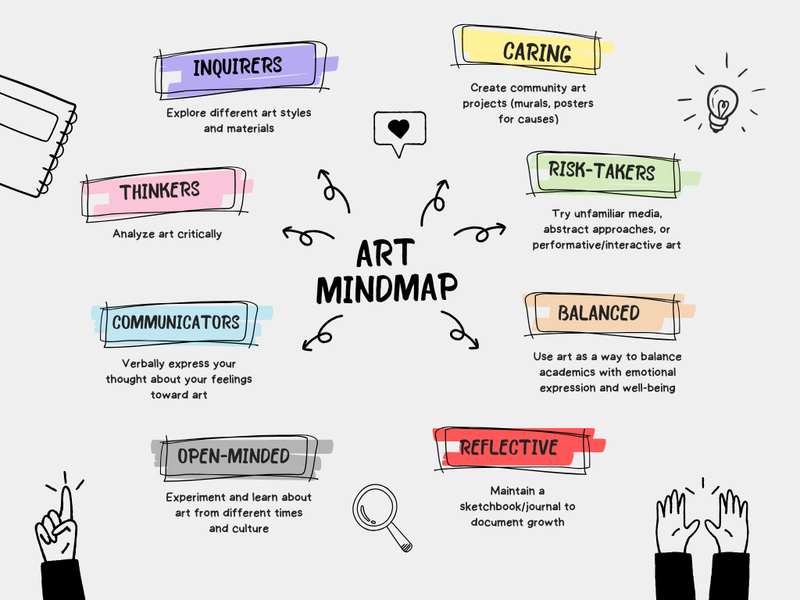 INQUIRERS
Explore different art styles
and materials
CARING
Create community art
projects (murals, posters
for causes)
THINKERS
Analyze art critically
RISK-TAKERS
Try unfamiliar media,
abstract approaches, or
performative/interactive art
ART
MINDMAP
COMMUNICATORS
Verbally express your
thought about your feelings
toward art
BALANCED
Use art as a way to balance
academics with emotional
expression and well-being
OPEN-MINDED
Experiment and learn about
art from different times
and culture
REFLECTIVE
Maintain a
sketchbook/journal to
document growth